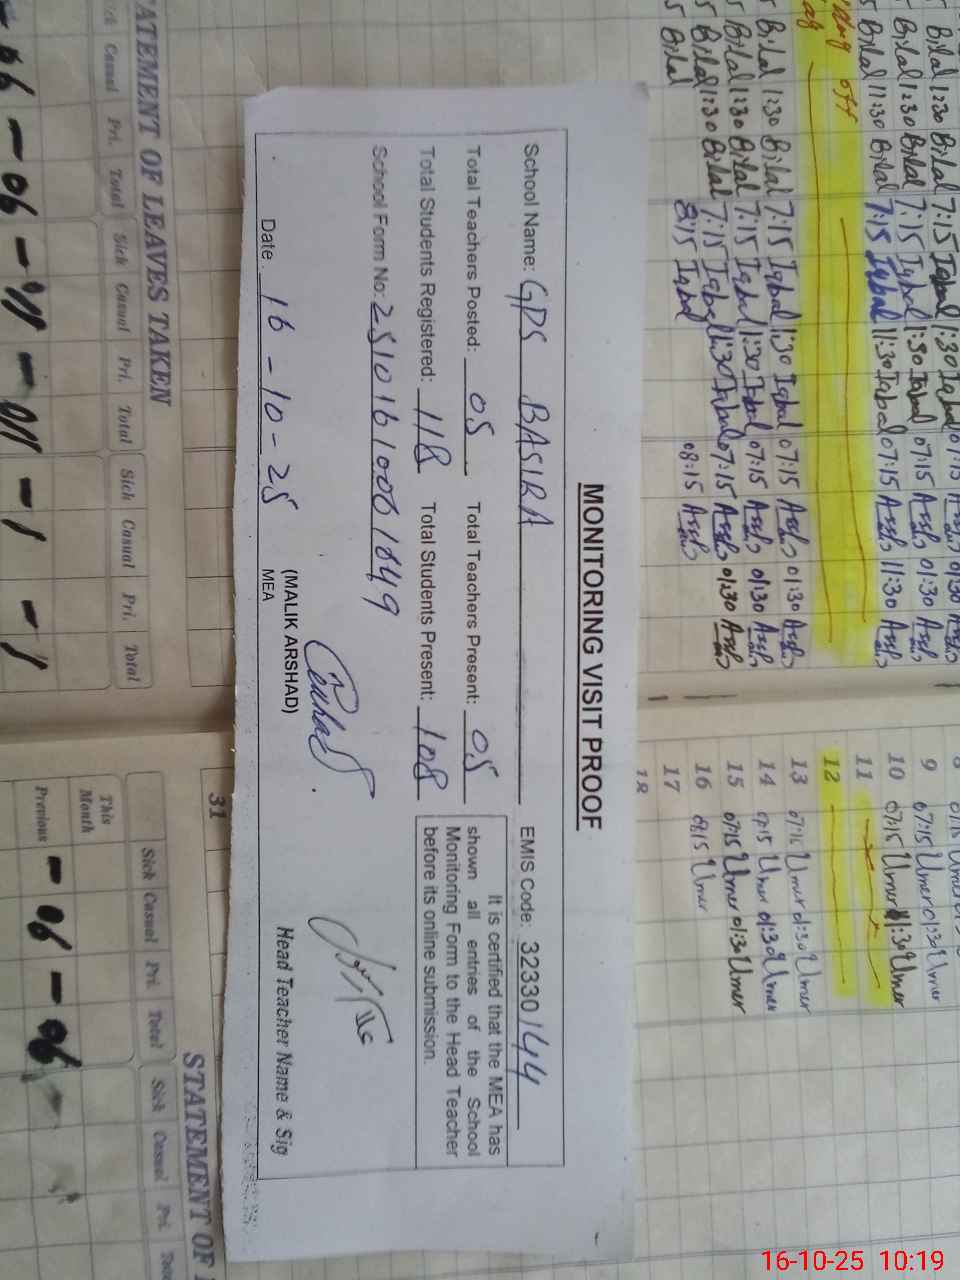 MONITORING VISIT PROOF
School Name: GPS BASIRA EMIS Code: 32330144
Total Teachers Posted: 05 Total Teachers Present: 05
Total Students Registered: 118 Total Students Present: 108
School Form No: 25101610061849
It is certified that the MEA has
shown all entries of the School
Monitoring Form to the Head Teacher
before its online submission.
Date: 16-10-25
(MALIK ARSHAD)
MEA
Head Teacher Name & Sig
Bilal 1:30 Bilal 7:15 Iqbal 1:30 Iqbal 07:15
Bilal 1:30 Bilal 7:15 Iqbal 1:30 Iqbal 07:15 01:30
Bilal 11:30 Bilal 7:15 Iqbal 11:30 Iqbal 07:15 11:30
off
Bilal 1:30 Bilal 7:15 Iqbal 1:30 Iqbal 07:15 01:30
Bilal 1:30 Bilal 7:15 Iqbal 1:30 Iqbal 07:15 01:30
Bilal 1:30 Bilal 7:15 Iqbal 1:30 Iqbal 07:15 01:30
Bilal 8:15 Iqbal 08:15
9 07:15 Umer 01:30 Umer
10 07:15 Umer 11:30 Umer
11
12
13 07:15 Umer 01:30 Umer
14 07:15 Umer 01:30 Umer
15 07:15 Umer 01:30 Umer
16 08:15 Umer
17
18
31
STATEMENT OF LEAVES TAKEN
Casual Pri. Total Sick Casual Pri. Total Sick Casual Pri. Total
06 - 11 - 011 - 1 - 1
STATEMENT OF
Sick Casual Pri. Total Sick Casual Pri.
This
Month
Previous - 06 - 06
16-10-25 10:19